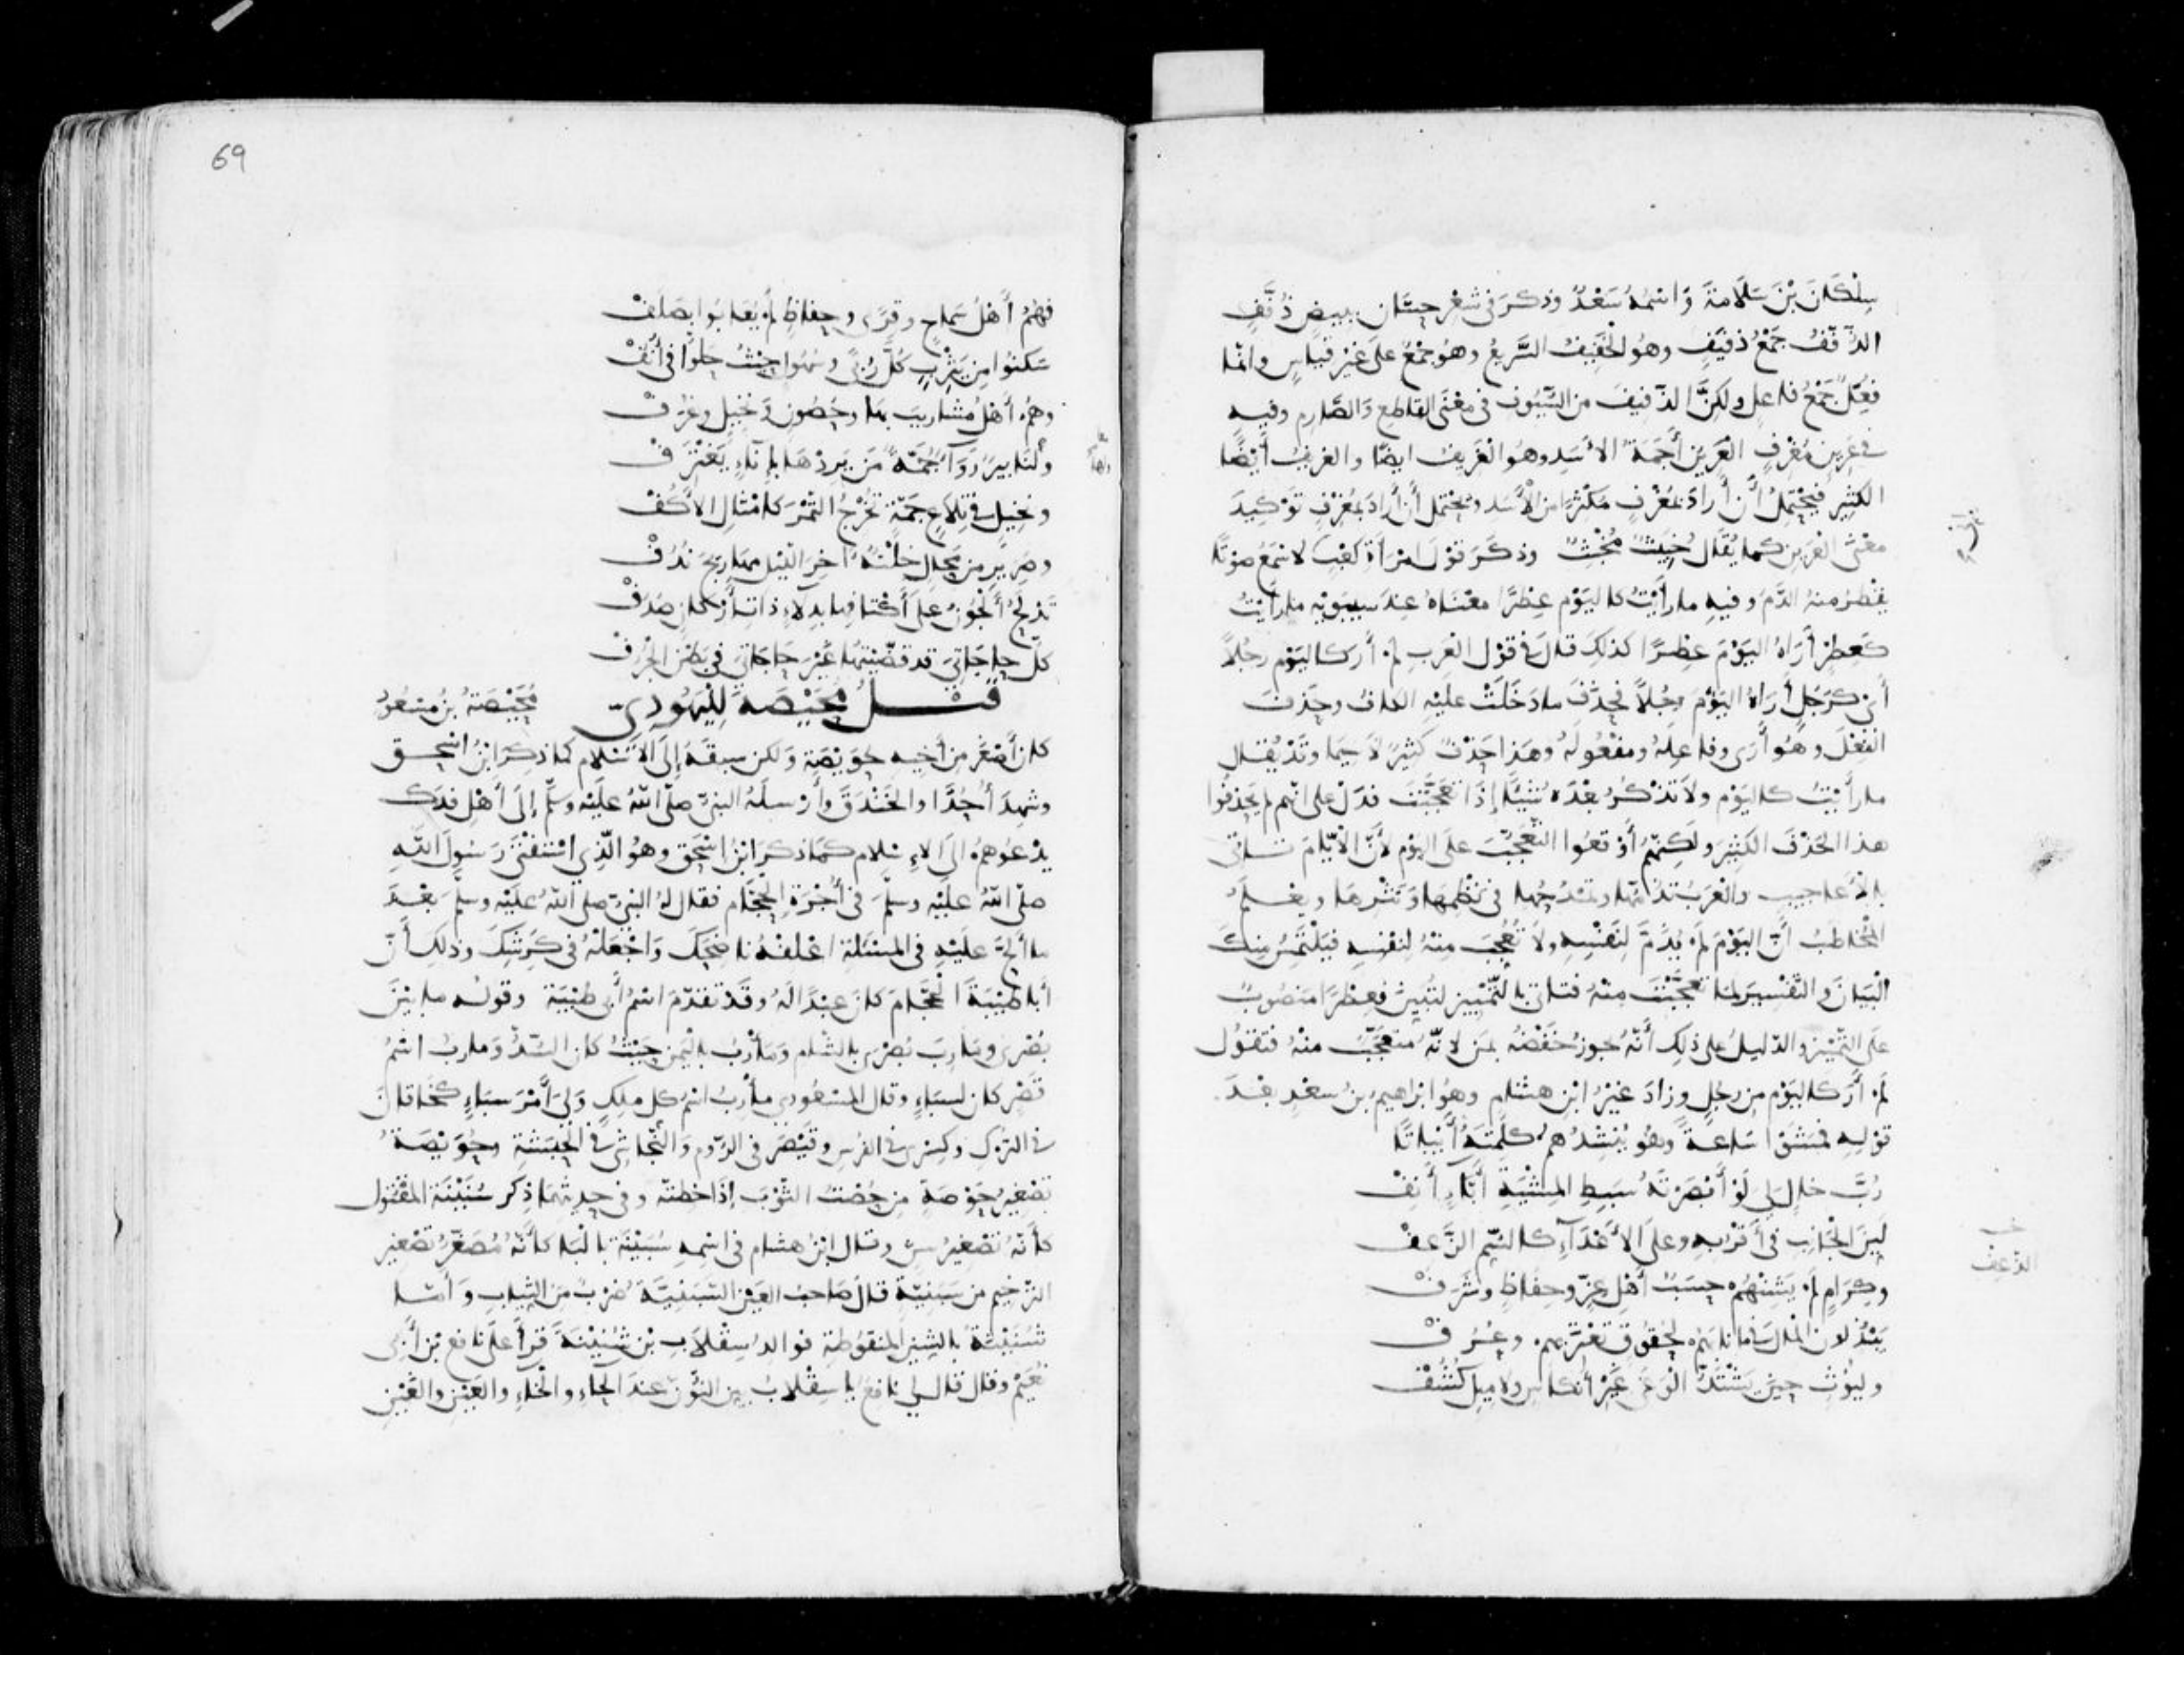 سِلْكَانَ بْنَ سَلَامَةَ وَاسْمُهُ سَعْدٌ وذكرَ فى شعْر حسَّان ببيضٍ ذُفَّفِ
الذُّفَّفُ جَمْعُ ذفيفٍ وهُو الخَفِيفُ السَّرِيعُ وهُو جَمْعٌ عَلَى غيْر قيَاسٍ وانما
فُعَّلٌ جَمْعُ فاعلٍ ولكِنَّ الذّفيفَ من السّيُوف فى معْنَى القاطِع وَالصَّارِم وفيه
فى عَرِين مُغْرِفِ العَرِين أَجَمَةُ الأَسَدِ وهُو الغَرِيف ايضًا والغريف أَيْضًا
الكَثِير فيَحْتَمِلُ أن أَرادَ بمُغْرِفٍ مكثرًا من الأُسْد ويحتمل أن أَرادَ بمُغْرِفٍ تَوْكِيدَ
معْنَى الغرِيف كما يُقَال خَبِيثٌ مُخْبِثٌ وذكَرَ قوْلَ امْرأةِ كعْبٍ لاسْمَعُ صوْتًا
يقْطرُ منهُ الدَّمُ وفيهِ ما رَأَيْتُ كاليَوْم عِطْرًا معْنَاهُ عِنْدَ سيبَوَيْهِ ما رأَيْتُ
كَعِطْرٍ أَرَاهُ اليَوْمَ عِطْرًا كذلِكَ قالَ فى قوْل العَربِ لم أَرَ كاليَوْم رجُلًا
أى كرَجُلٍ أَرَاهُ اليَوْمَ رجُلًا فحذَفَ ما دَخَلَتْ عليْهِ الكاف وحذفَ
الفِعْلَ وهُو أَرَى وفاعِلهُ ومفْعُولهُ وهَذا حَذْفٌ كثيرٌ لَا سِيمَا وقَدْ يُقال
ما رأَيْتُ كاليَوْم ولا تَذْكُرُ بعْدَه شَيْئًا إذَا تعجَّبْتَ فدَلّ على انّهم لم يَحْذِفُوا
هذا الحَذْفَ الكَثِيرَ ولَكِنّهُم أَوْقعُوا التَعَجُّبَ علَى اليَوْم لأَنَّ الأَيّامَ تاتى
بالأَعاجِيبِ والعَرَبُ تذُمُّها وتمْدحُهَا فى نظْمِهَا وَنَثْرِهَا ويعْلَمُ
المُخَاطَبُ أنَّ اليَوْمَ لَم يُذَمَّ لِنَفْسِهِ ولَا تُعُجِّبَ منْهُ لِنفْسِهِ فيَلْتَمِسُ مِنْكَ
البَيَانَ وَالتّفْسِيرَ لما تعجّبْتَ مِنْهُ فتَاتى بالتّمْيِيز لتُبَيِّنَ فعِطْرًا منصُوبٌ
علَى التّمْيِيزِ والدّليلُ على ذلِك أَنّهُ يجوزُ خَفْضُهُ بمِنْ لانّهُ مُتعَجَّبٌ منْهُ فتقُول
لم أرَ كاليَوْم مِن رجُلٍ وزادَ غيْرُ ابْن هشامٍ وهُو ابراهيمُ بنُ سعْدٍ بعْدَ
قوْلِهِ فمَشَوْا سَاعةً وهُو يُنْشِدُهُم كلِمَتَهُ أَبْيَاتًا
رُبَّ خالٍ لِى لوْ أَبْصَرْتَهُ سَبِطِ المِشْيَةِ أَبَّاءٍ أَنِفْ
لَيّنَ الجَانِب فى أَقْرَبِهِ وعلَى الأَعْدَآءِ كالسّم الزُّعفْ
وكِرَامٍ لَم يَشِنْهُم حسَبٌ أَهْل عِزٍّ وحِفاظٍ وشَرَفْ
يَبْذُلونَ المْالَ فيما نابَهُم لحُقُوقٍ تعْتَرِيهم وعُرُفْ
ولُيُوثٍ حينَ يَشْتَدُّ الوَغى غيْر أنْكاسٍ ولا مِيلٍ كُشُفْ
الذعف
69
فَهُمُ أَهْلُ سَماحٍ وقِرًى وحِفاظٍ لم يُعَابُوا بصَلَفْ
سَكنُوا مِن يَثْرِبٍ كُلَّ رُبًى وسُهُولٍ حيْثُ حَلُّوا فى أُنُفْ
وهُم أَهْلُ مَشَارِيبَ بهَا وحُصُونٍ ونخِيلٍ وغُرَفْ
ولَنَا بِيرٌ رَوَآءٌ جُمّةٌ مَن يَرِدْهَا بإِنَآءٍ يَغْتَرِفْ
ونخِيلٍ فى تِلَاعٍ جمّةٍ تُخْرِجُ التَّمْرَ كأَمْثالِ الأَكُفْ
وصَرِيرٍ مِن مَحَالٍ خِلْتَهُ آخِرَ اللّيْل مَهَارِيجَ بدُفْ
تَدْلُحُ الجُونُ عَلَى أَكْتافِها بدِلآءٍ ذاتِ أَركانٍ صُدُفْ
كلُّ حاجَاتِى قد قضّيْتُهَا غَيْرَ حَاجَاتِىَ فى بَطْنِ الجُرُفْ
قتل مُحَيِّصَةَ لِليَهُودِىّ مُحَيِّصَةُ بْنُ مَسْعُودٍ
كان أَصْغرَ مِن أَخِيه حوَيّصَة وَلكن سبقَهُ إلَى الاسْلام كما ذكرَ ابْنُ اسْحق
وشهِدَ أُحُدًا والخَنْدَقَ وأَرْسلَهُ النبىّ صلّى اللهُ عليْه وسلّم إلَى أَهْل فدَك
يدْعُوهُم الى الاِسْلام كما ذكرَ ابْنُ اسْحق وهُو الّذِى اسْتفْتى رَسُولَ اللهِ
صلى اللهُ عليْه وسلّمَ فى أُجْرَة الحجّام فقال لهُ النبىّ صلى اللهُ عليْه وسلّم بعْدَ
ما أَلحَّ علَيْهِ فى المسْئلة اعْلفْهُ ناضِحَكَ وَاجْعَلْهُ فى كَرِشِكَ وذلكَ أَنّ
أَبا طَيْبَةَ الحَجّامَ كانَ عبْدًا لَهُ وقدْ تقدّمَ اسْمُ أَبى طَيْبَةَ وقولُه ما بيْنَ
بُصْرى ومأرِبَ بُصْرى بالشام وَمأْرِبُ باليَمن حيْثُ كان السّدُّ وَماربُ اسْمُ
قَصْرٍ كان لسبَاءٍ وقال المسْعُودى مأْرِبُ اسْمُ كل ملِكٍ وَلِىَ أَمْرَ سبَاءٍ كخَاقانَ
فى التُرْكِ وكِسْرى فى الفُرس وقَيْصَر فى الرّوم وَالنّجاشى فى الحَبَشةِ وحُوَيّصَةُ
تصْغِيرُ حَوْصةٍ مِن حُصْتُ الثّوْبَ إذَا خِطْتَه وفى حدِيثهمَا ذِكر سُنَيْنَة المقْتول
كأَنّهُ تصْغِيرُ سِنّ وقال ابْنُ هشام فى اسْمِهِ سُبَيْنَة بالبَا كأَنّهُ مُصَغّرٌ تصْغير
الترْخيم من سَبَنِيّة قالَ صَاحبُ العَيْن السّبَنِيّة ضرْبٌ مِن الثِّيَابِ وَأمّا
شُنَيْنَةُ بالشِّين المنقوطة فوالدُ سِقْلابِ بْن شُنَيْنَةَ قرَأَ علَى نافع بْن أَبى
نُعَيْم وقال قال لى نافعٌ يا سِقْلابُ بيّن النُّونَ عندَ الحَاءِ والخَاءِ والعَيْن والغَيْن